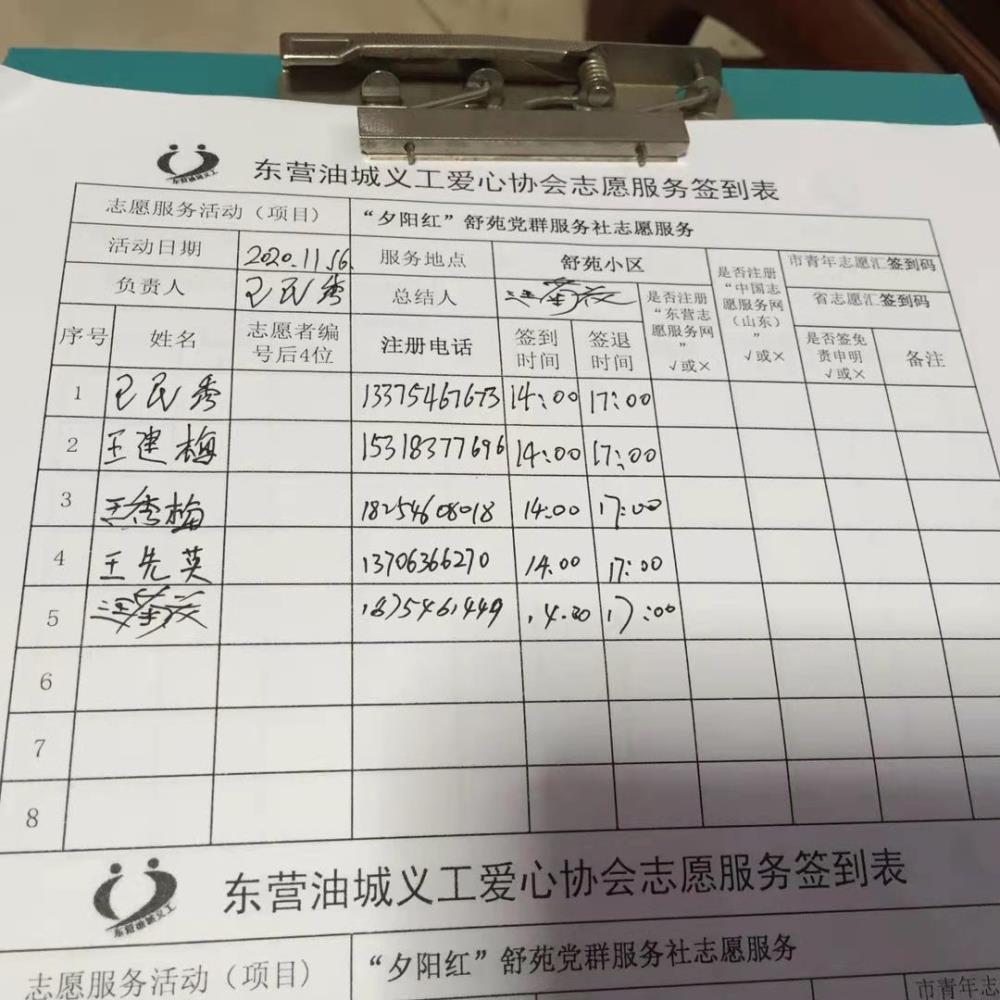 东营油城义工
东营油城义工爱心协会志愿服务签到表
志愿服务活动（项目） “夕阳红”舒苑党群服务社志愿服务
活动日期 2020.11 服务地点 舒苑小区 是否注册“中国志愿服务网（山东）” √或× 市青年志愿汇签到码
负责人 王民秀 总结人 是否注册“东营志愿服务网” √或× 省志愿汇签到码
序号 姓名 志愿者编号后4位 注册电话 签到时间 签退时间 是否签免责申明 √或× 备注
1 王民秀 13375467673 14:00 17:00
2 王建梅 15318377696 14:00 17:00
3 王秀梅 18254608018 14:00 17:00
4 王先英 13706366270 14.00 17:00
5 17:00
6
7
8
东营油城义工
东营油城义工爱心协会志愿服务签到表
志愿服务活动（项目） “夕阳红”舒苑党群服务社志愿服务
市青年志